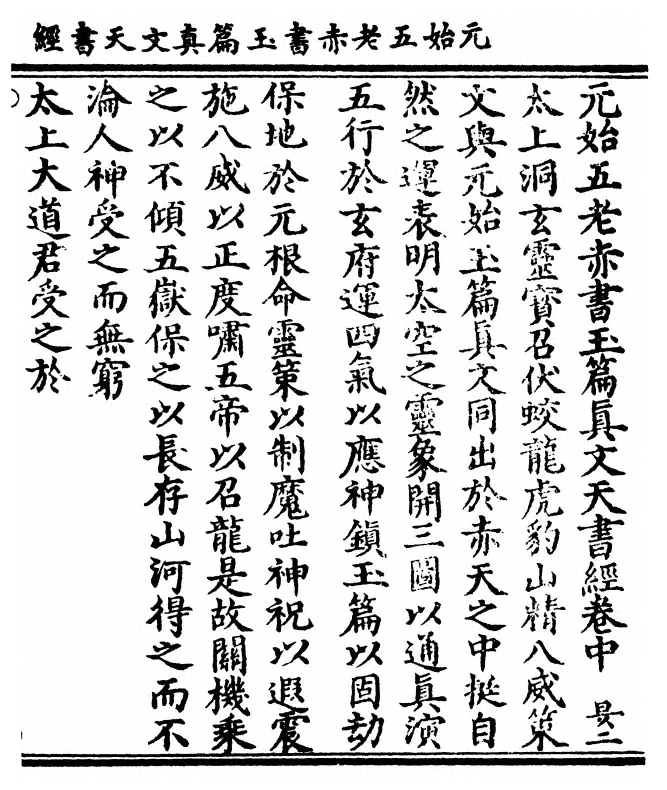 元始五老赤書玉篇真文天書經
元始五老赤書玉篇眞文天書經卷中 㫤二
太上洞玄靈寶召伏蛟龍虎豹山精八威策
文與元始玉篇眞文同出於赤天之中挺自
然之運表明太空之靈象開三圖以通眞演
五行於玄府運四氣以應神鎮玉篇以固劫
保地於元根命靈策以制魔吐神祝以遐震
施八威以正度嘯五帝以召龍是故關機乘
之以不傾五嶽保之以長存山河得之而不
淪人神受之而無窮
太上大道君受之於